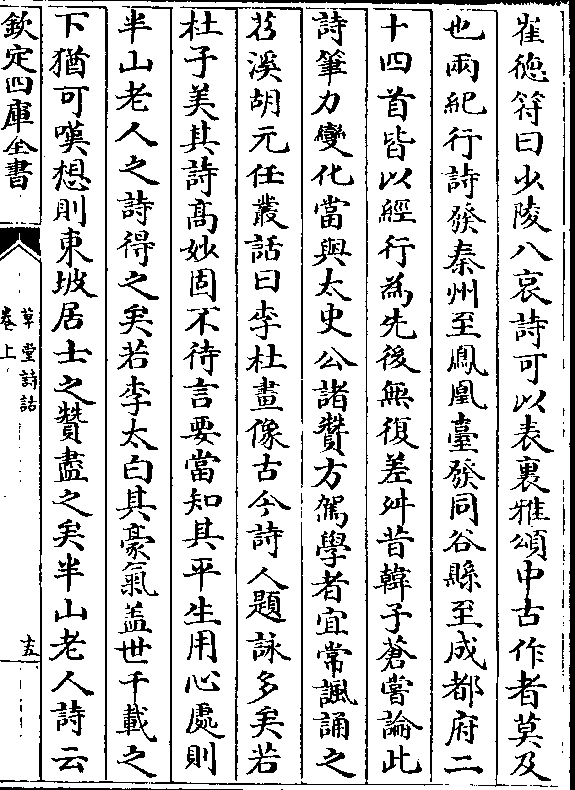 崔徳符曰少陵八哀詩可以表裏雅頌中古作者莫及
也兩紀行詩發秦州至鳳凰臺發同谷縣至成都府二
十四首皆以經行為先後無復差舛昔韓子蒼嘗論此
詩筆力變化當與太史公諸贊方駕學者宜常諷誦之
苕溪胡元任叢話曰李杜畫像古今詩人題詠多矣若
杜子美其詩髙妙固不待言要當知其平生用心處則
半山老人之詩得之矣若李太白其豪氣蓋世千載之
下猶可嘆想則東坡居士之贊盡之矣半山老人詩云
欽定四庫全書
草堂詩話
卷上
十五